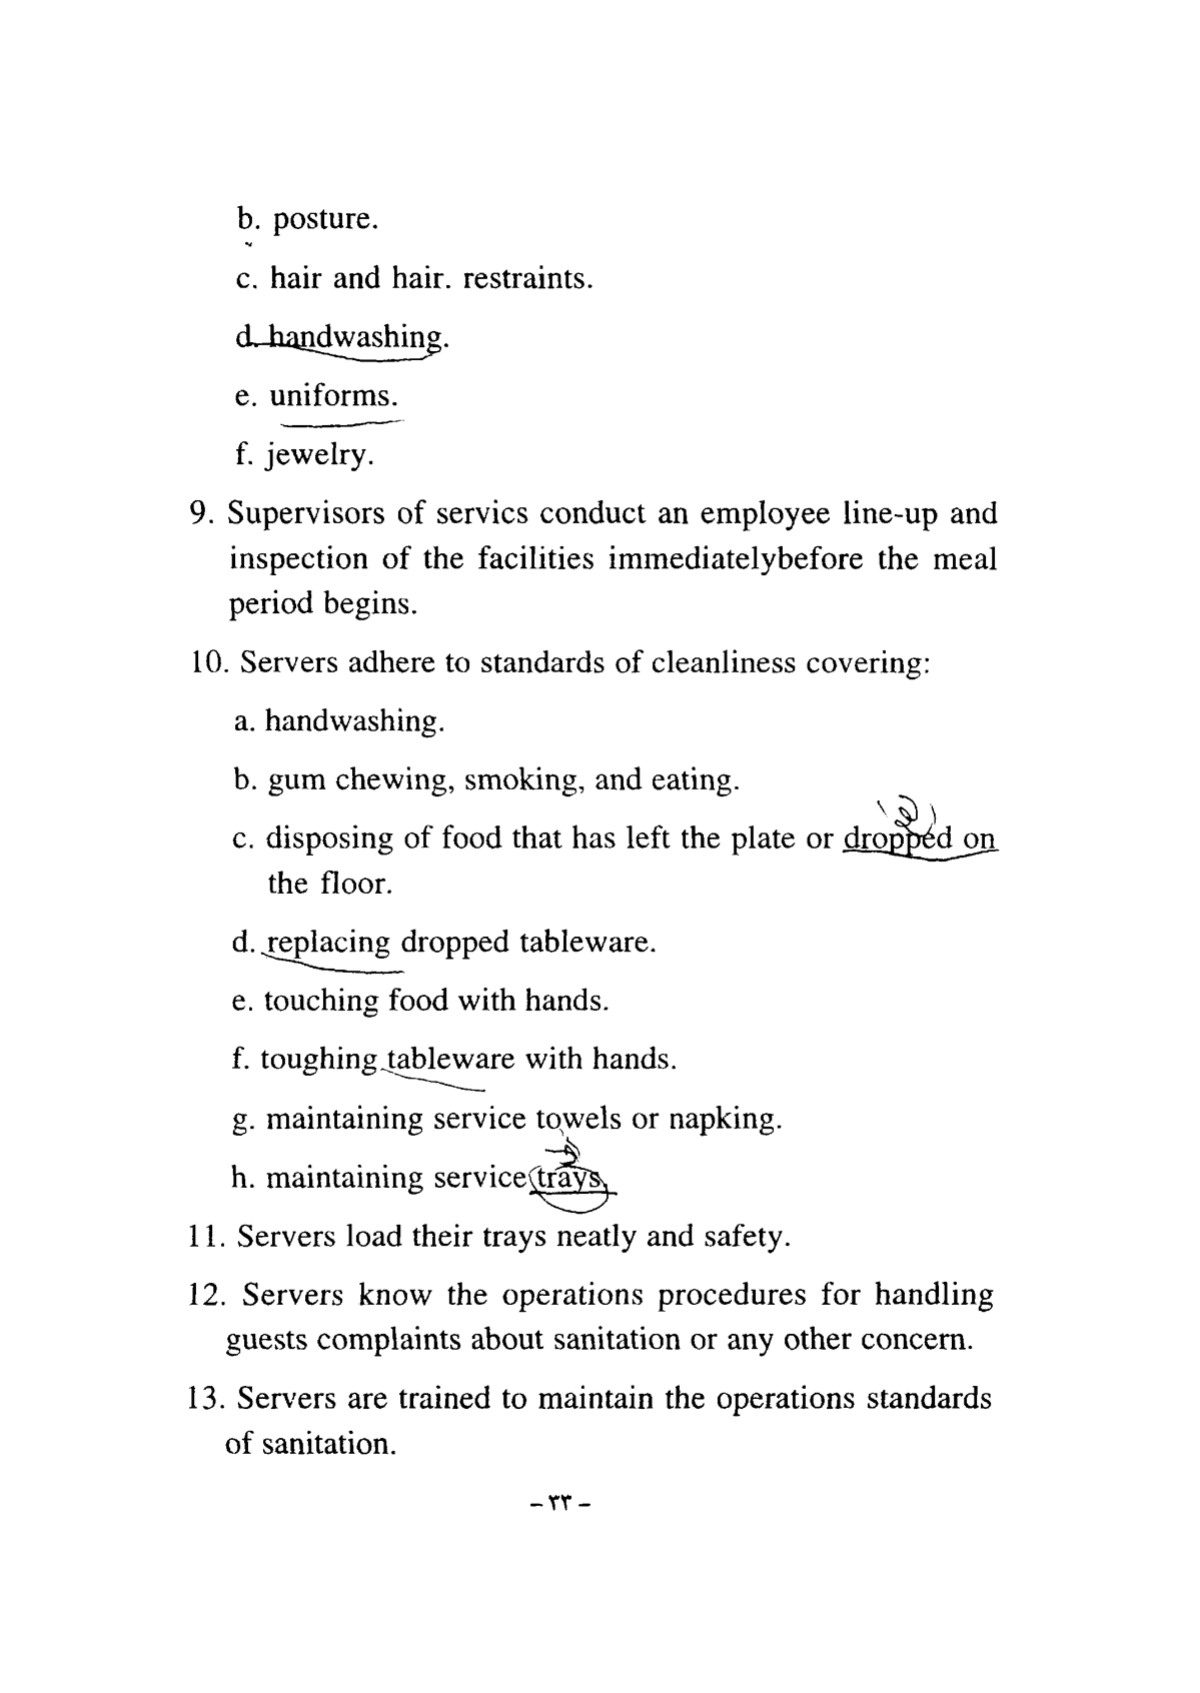 b. posture.
c. hair and hair. restraints.
d. handwashing.
e. uniforms.
f. jewelry.
9. Supervisors of servics conduct an employee line-up and
inspection of the facilities immediatelybefore the meal
period begins.
10. Servers adhere to standards of cleanliness covering:
a. handwashing.
b. gum chewing, smoking, and eating.
c. disposing of food that has left the plate or dropped on
the floor.
d. replacing dropped tableware.
e. touching food with hands.
f. toughing tableware with hands.
g. maintaining service towels or napking.
h. maintaining service trays.
11. Servers load their trays neatly and safety.
12. Servers know the operations procedures for handling
guests complaints about sanitation or any other concern.
13. Servers are trained to maintain the operations standards
of sanitation.
– ٣٣ –